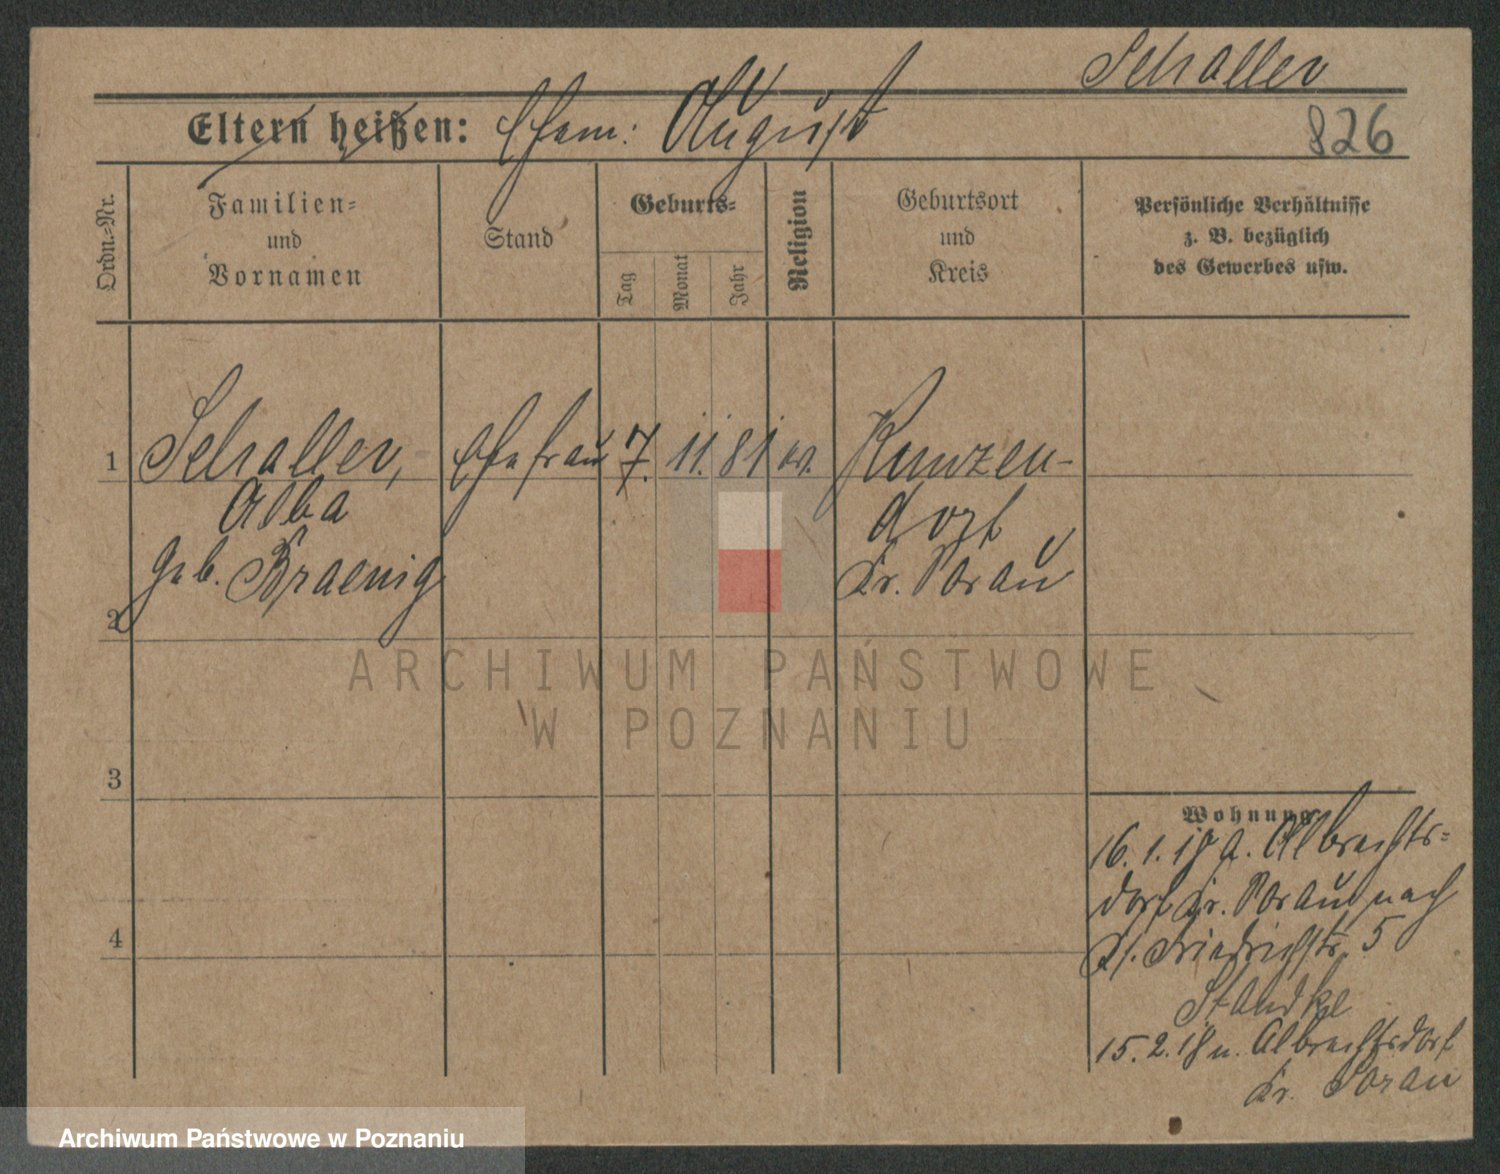 Schaller
Eltern heißen: Ehem: August
826
Ordn.-Nr.
Familien-
und
Vornamen
Stand
Geburts-
Tag
Monat
Jahr
Religion
Geburtsort
und
Kreis
Persönliche Verhältnisse
z. B. bezüglich
des Gewerbes usw.
1 Schaller, Ehefrau 7. 11. 81 ev. Kunzen-
Alba dorf
geb. Braenig Kr. Sorau
2
ARCHIWUM PAŃSTWOWE
W POZNANIU
3
Wohnung
16. 1. 18 a. Albrechts-
dorf Kr. Sorau nach
Kl. Friedrichstr. 5
4
Standke
15. 2. 18 n. Albrechtsdorf
Kr. Sorau
Archiwum Państwowe w Poznaniu